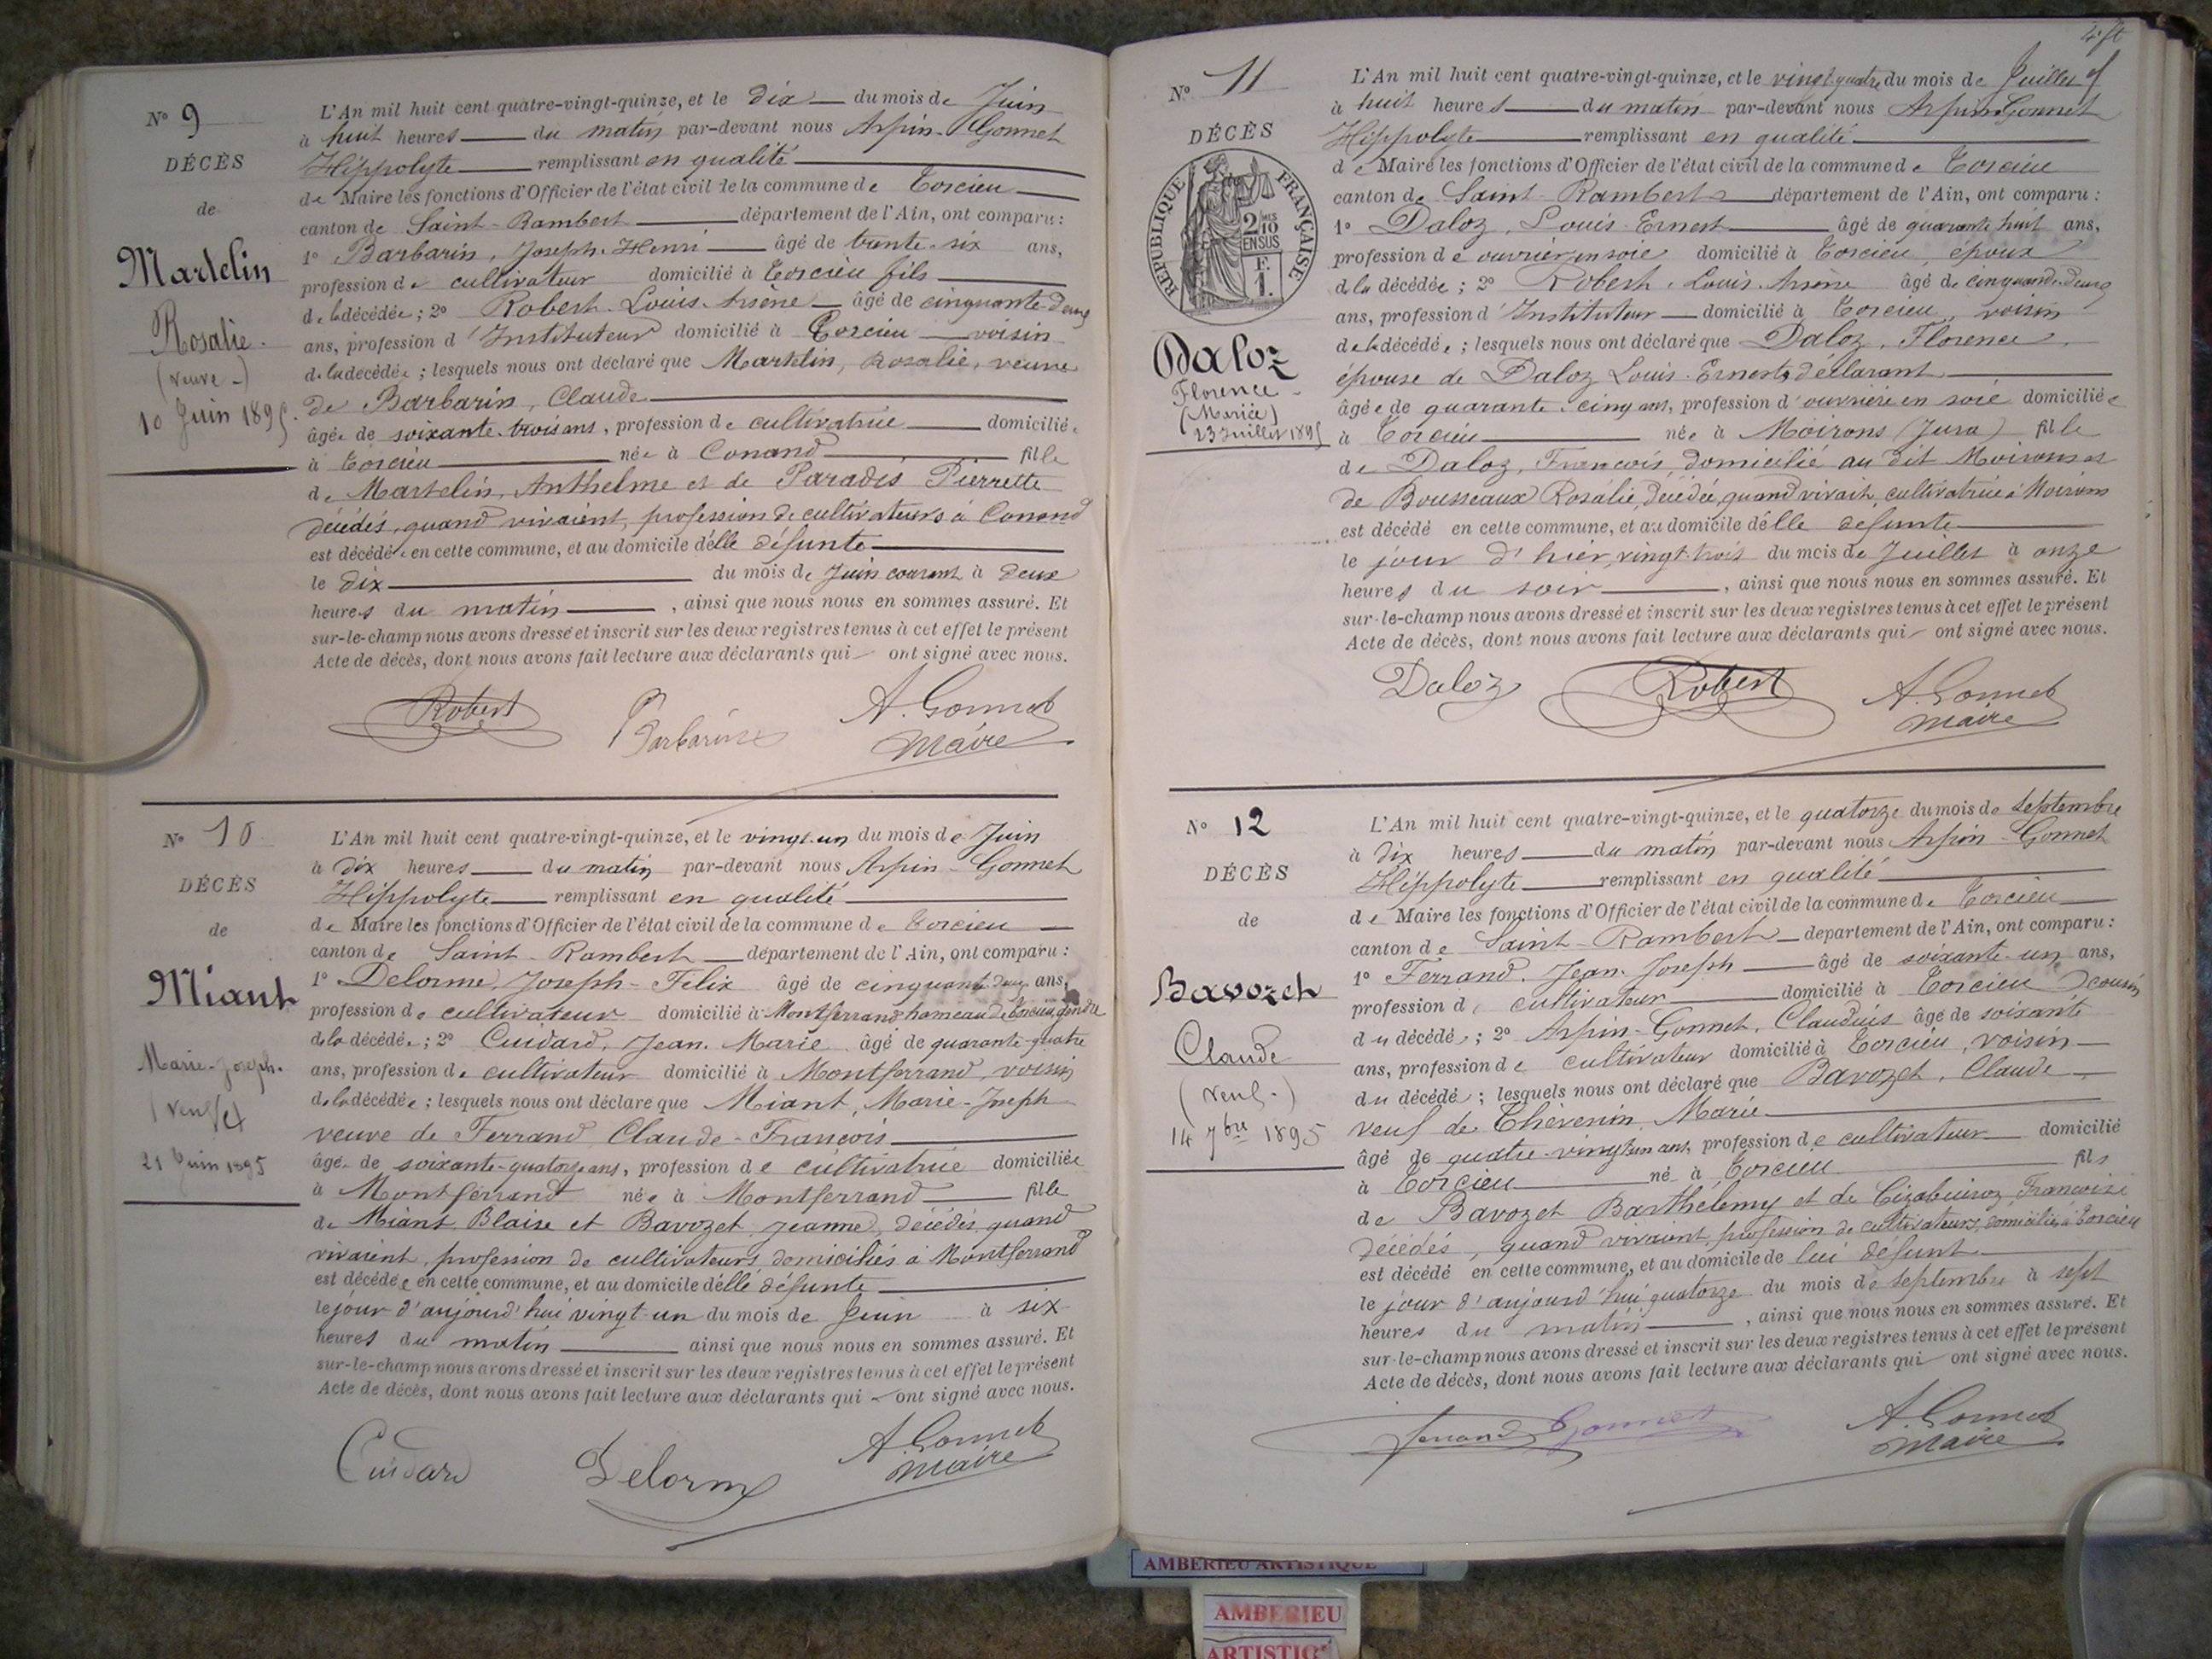 Nº 9
DÉCÈS
de
Martelin
Rosalie
(veuve)
10 Juin 1895.
L'An mil huit cent quatre-vingt-quinze, et le dix du mois de Juin
à huit heures du matin par-devant nous Arpin-Gonnet
Hippolyte remplissant en qualité
de Maire les fonctions d'Officier de l'état civil de la commune de Torcieu
canton de Saint-Rambert département de l'Ain, ont comparu :
1º Barbarin, Joseph-Henri âgé de trente-six ans,
profession de cultivateur domicilié à Torcieu fils
de la décédée ; 2º Robert Louis-Arsène âgé de cinquante-deux
ans, profession d'Instituteur domicilié à Torcieu voisin
de la décédée ; lesquels nous ont déclaré que Martelin, Rosalie, veuve
de Barbarin, Claude
âgée de soixante-trois ans, profession de cultivatrice domiciliée
à Torcieu née à Conand fille
de Martelin, Anthelme et de Paradis Pierrette
décédés, quand vivaient, profession de cultivateurs à Conand
est décédée en cette commune, et au domicile d'elle défunte
le dix du mois de Juin courant à deux
heures du matin, ainsi que nous nous en sommes assuré. Et
sur-le-champ nous avons dressé et inscrit sur les deux registres tenus à cet effet le présent
Acte de décès, dont nous avons fait lecture aux déclarants qui ont signé avec nous.
Robert Barbarin A. Gonnet
Maire
Nº 10
DÉCÈS
de
Miant
Marie-Joseph
21 Juin 1895
L'An mil huit cent quatre-vingt-quinze, et le vingt-un du mois de Juin
à dix heures du matin par-devant nous Arpin-Gonnet
Hippolyte remplissant en qualité
de Maire les fonctions d'Officier de l'état civil de la commune de Torcieu
canton de Saint-Rambert département de l'Ain, ont comparu :
1º Delorme, Joseph-Félix âgé de cinquante-deux ans,
profession de cultivateur domicilié à Montferrand hameau de Torcieu, gendre
de la décédée ; 2º Cuidard, Jean-Marie âgé de quarante-quatre
ans, profession de cultivateur domicilié à Montferrand, voisin
de la décédée ; lesquels nous ont déclaré que Miant, Marie-Joseph
veuve de Ferrand Claude-François
âgée de soixante-quatorze ans, profession de cultivatrice domiciliée
à Montferrand née à Montferrand fille
de Miant Blaise et Bavozet Jeanne, décédés, quand
vivaient, profession de cultivateurs, domiciliés à Montferrand
est décédée en cette commune, et au domicile d'elle défunte
le jour d'aujourd'hui vingt-un du mois de Juin à six
heures du matin ainsi que nous nous en sommes assuré. Et
sur-le-champ nous avons dressé et inscrit sur les deux registres tenus à cet effet le présent
Acte de décès, dont nous avons fait lecture aux déclarants qui ont signé avec nous.
Cuidard Delorme A. Gonnet
Maire
Nº 11
DÉCÈS
RÉPUBLIQUE FRANÇAISE
2 MES
10
EN SUS
F.
1.
Daloz
Florence
(Mariée)
23 Juillet 1895
L'An mil huit cent quatre-vingt-quinze, et le vingt-quatre du mois de Juillet
à huit heures du matin par-devant nous Arpin-Gonnet
Hippolyte remplissant en qualité
de Maire les fonctions d'Officier de l'état civil de la commune de Torcieu
canton de Saint-Rambert département de l'Ain, ont comparu :
1º Daloz, Louis-Ernest âgé de quarante-huit ans,
profession de ouvrier en soie domicilié à Torcieu, époux
de la décédée ; 2º Robert, Louis-Arsène âgé de cinquante-deux
ans, profession d'Instituteur domicilié à Torcieu, voisin
de la décédée ; lesquels nous ont déclaré que Daloz, Florence,
épouse de Daloz Louis-Ernest, déclarant
âgée de quarante-cinq ans, profession d'ouvrière en soie domiciliée
à Torcieu née à Moirans (Jura) fille
de Daloz, François, domicilié au dit Moirans et
de Bousseaux Rosalie, décédée, quand vivait, cultivatrice à Moirans
est décédé en cette commune, et au domicile d'elle défunte
le jour d'hier, vingt-trois du mois de Juillet à onze
heures du soir, ainsi que nous nous en sommes assuré. Et
sur-le-champ nous avons dressé et inscrit sur les deux registres tenus à cet effet le présent
Acte de décès, dont nous avons fait lecture aux déclarants qui ont signé avec nous.
Daloz Robert A. Gonnet
Maire
Nº 12
DÉCÈS
de
Bavozet
Claude
(Veuf)
14 7bre 1895
L'An mil huit cent quatre-vingt-quinze, et le quatorze du mois de Septembre
à dix heures du matin par-devant nous Arpin-Gonnet
Hippolyte remplissant en qualité
de Maire les fonctions d'Officier de l'état civil de la commune de Torcieu
canton de Saint-Rambert département de l'Ain, ont comparu :
1º Ferrand, Jean-Joseph âgé de soixante-un ans,
profession de cultivateur domicilié à Torcieu cousin
du décédé ; 2º Arpin-Gonnet, Claudius âgé de soixante
ans, profession de cultivateur domicilié à Torcieu, voisin
du décédé ; lesquels nous ont déclaré que Bavozet, Claude
veuf de Thévenin, Marie
âgé de quatre-vingt-un ans, profession de cultivateur domicilié
à Torcieu né à Torcieu fils
de Bavozet Barthélemy et de Françoise
décédés, quand vivaient, profession de cultivateurs, domiciliés à Torcieu
est décédé en cette commune, et au domicile de lui défunt
le jour d'aujourd'hui quatorze du mois de Septembre à sept
heures du matin, ainsi que nous nous en sommes assuré. Et
sur-le-champ nous avons dressé et inscrit sur les deux registres tenus à cet effet le présent
Acte de décès, dont nous avons fait lecture aux déclarants qui ont signé avec nous.
Ferrand Gonnet A. Gonnet
Maire
AMBERIEU ARTISTIQUE
AMBERIEU
ARTISTIQ